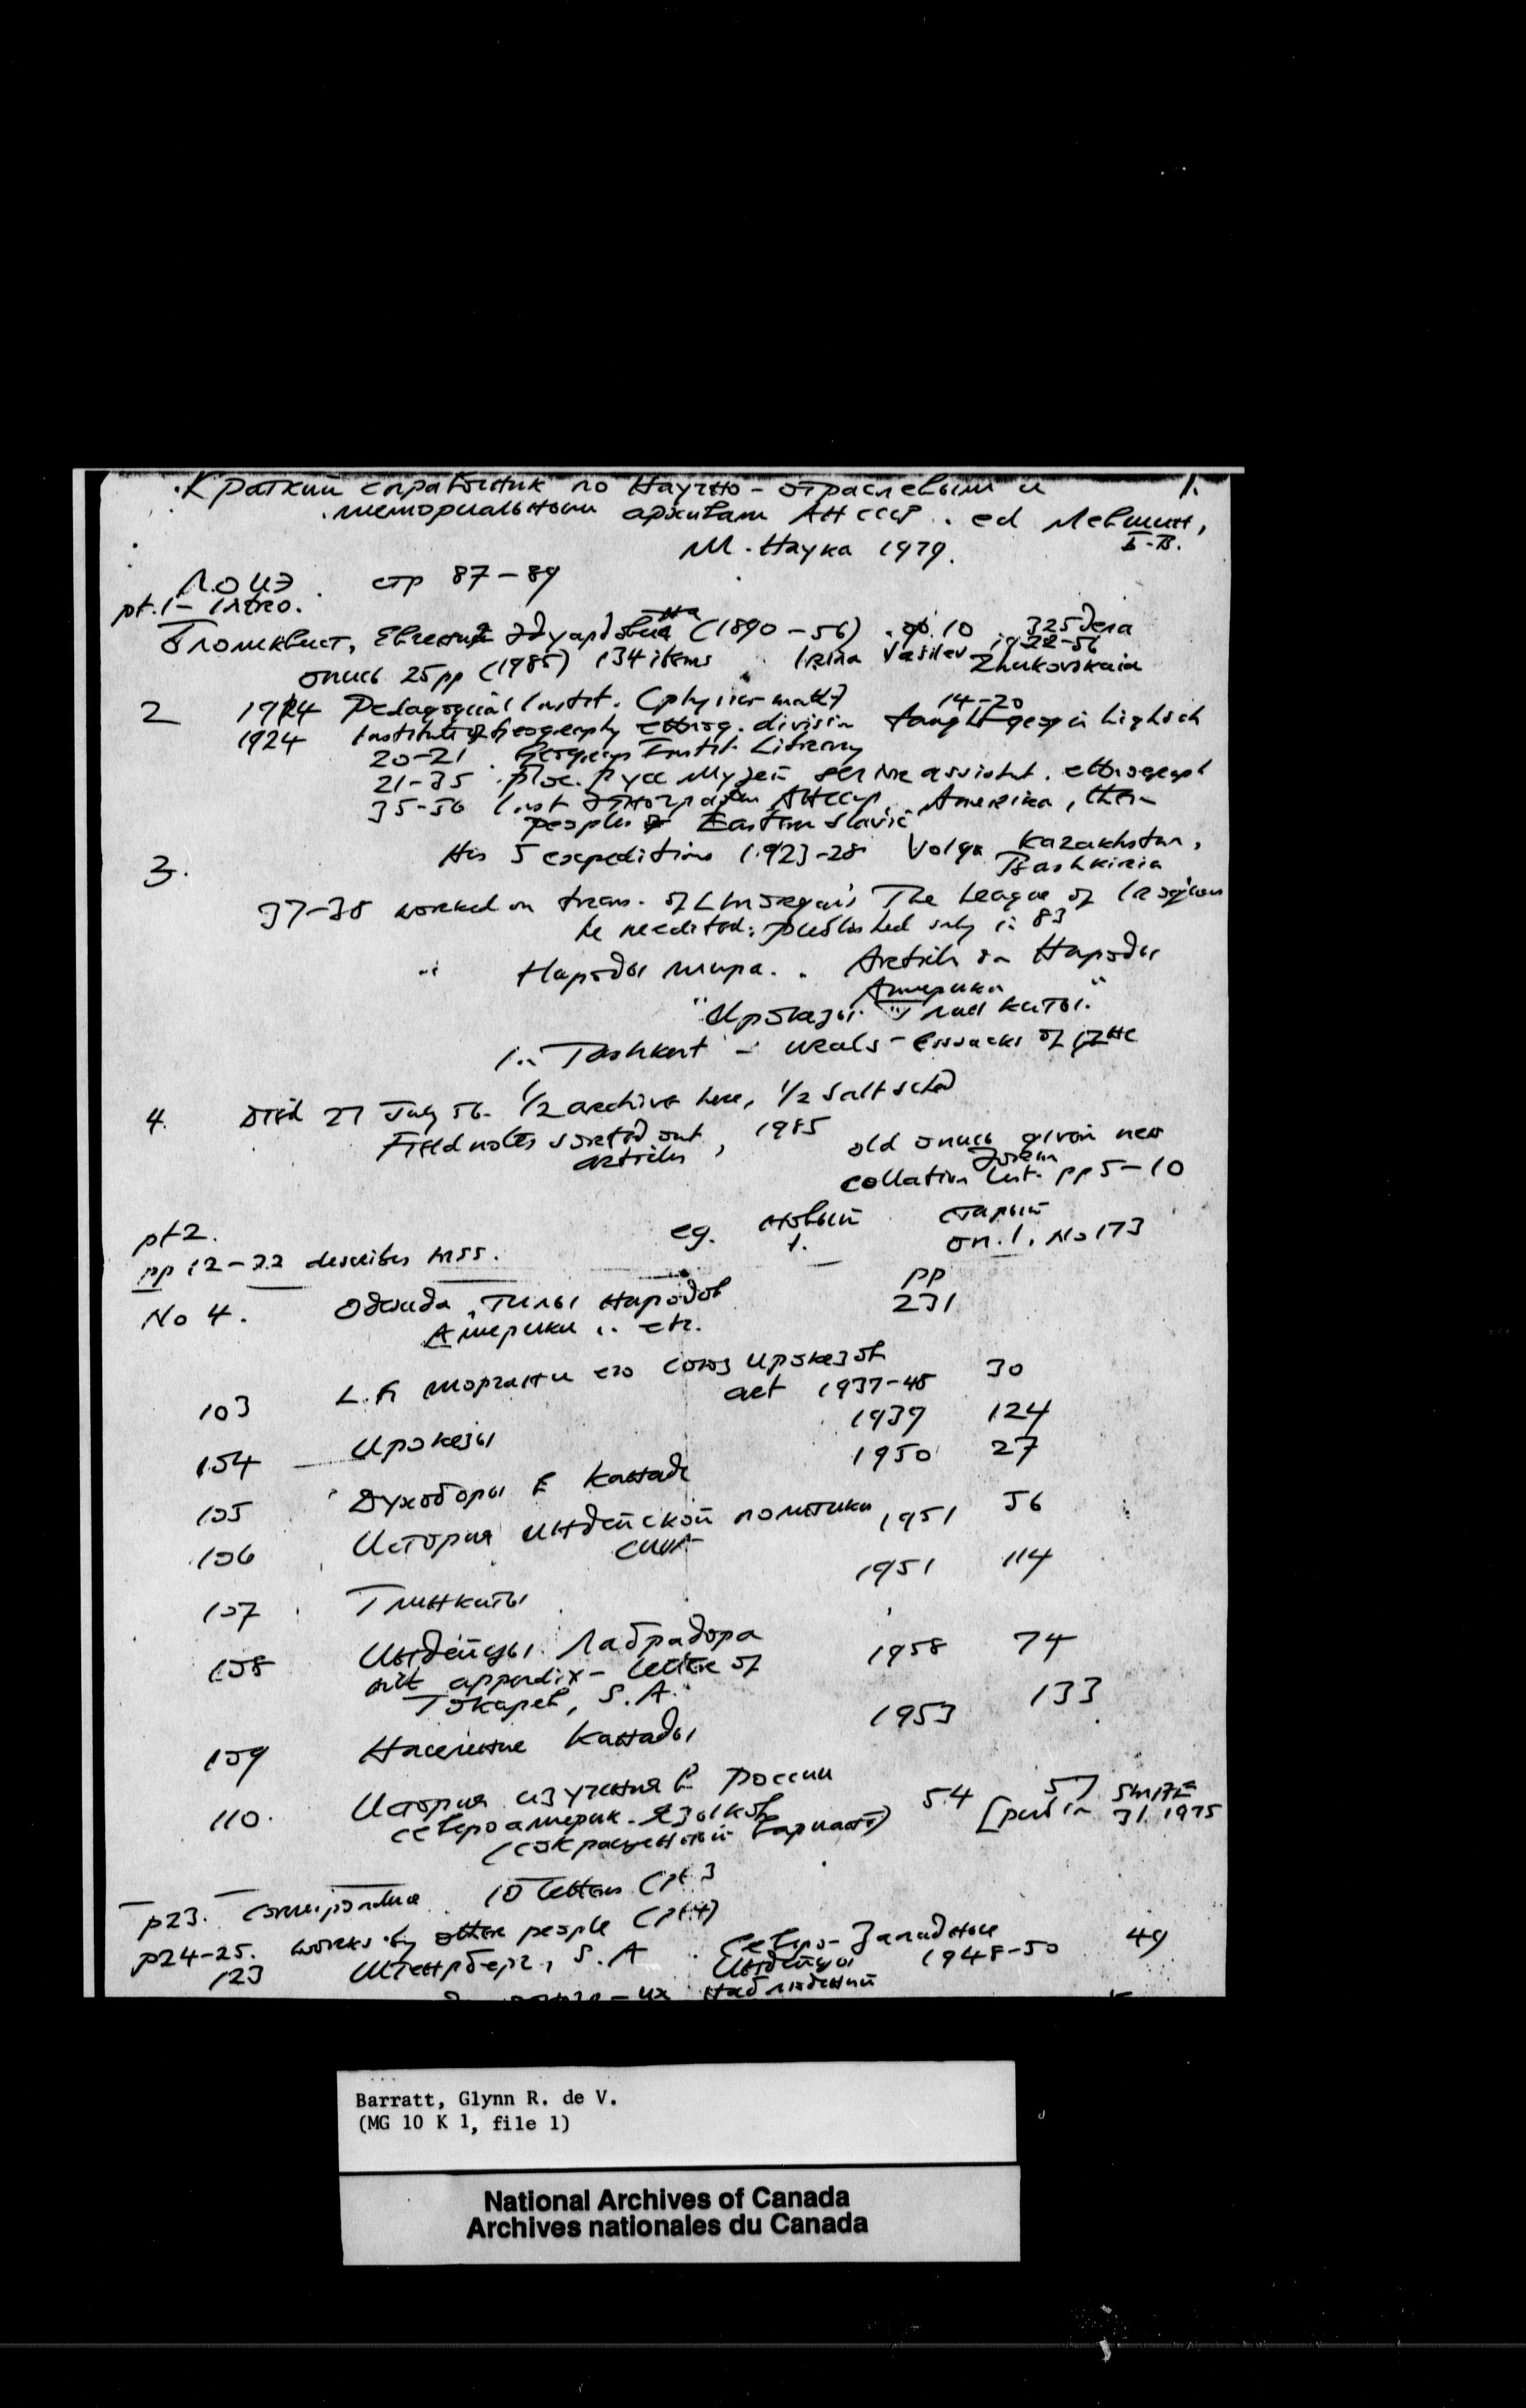 Краткий справочник по Научно-отраслевым и 1.
мемориальным архивам АН СССР. ed Левшин,
Б.В.
М. Наука 1979.
ЛОИЭ. стр 87-89
pt.1- Intro.
Бломквист, Евгения Эдуардовна (1890-56) 10 325 дела
1922-56
опись 25pp (1985) 134 items Irina Vasilev Zhukovskaia
2 1914 Pedagogical Instit. 14-20
1924 Institute of Geography ethnog. division taught geog in high sch
20-21. Geograp Instit Library
21-35 Рус Музей assistent. ethnograph
35-56 Inst Этнографии АН СССР, America, then
peoples of Eastern Slavic
3. Her 5 expeditions 1923-28 Volga Kazakhstan,
Bashkiria
37-38 worked on trans. of L Morgan's The League of Iroquois
he reedited: published only in 83
Народы мира.. Article on Народы
Америки
"Ирокезы" "Тлинкиты."
Tashkent - Urals - Cossacks of
4. Died 27 July 56. 1/2 archive here, 1/2
Field notes sorted out, 1985
articles
old опись given new
collation list. pp 5-10
pt 2. eg. новый старый
1. оп. 1. No 173
pp 12-22 describes mss.
pp
No 4. Одежда, типы народов 231
Америки .. etc.
103 L. H Морган и его союз Ирокезов 30
1937-45
154 Ирокезы 1939 124
105 Духоборы в Канаде 1950 27
106 История индейской политики 1951 56
США
107 Тлинкиты 1951 114
108 Индейцы Лабрадора 1958 74
with appendix - letter of
Токарев, S.A.
109 Население Канады 1953 133
110. История изучения в России 54 57
североамерик. языков [publ in 31. 1975
(сокращенный вариант)
p23. Correspondence 10 letters (pt 3
p24-25. works by other people (pt 4)
123 Штернберг, S. A Северо-Западные 49
Индейцы 1948-50
их наблюдений
Barratt, Glynn R. de V.
(MG 10 K 1, file 1)
National Archives of Canada
Archives nationales du Canada